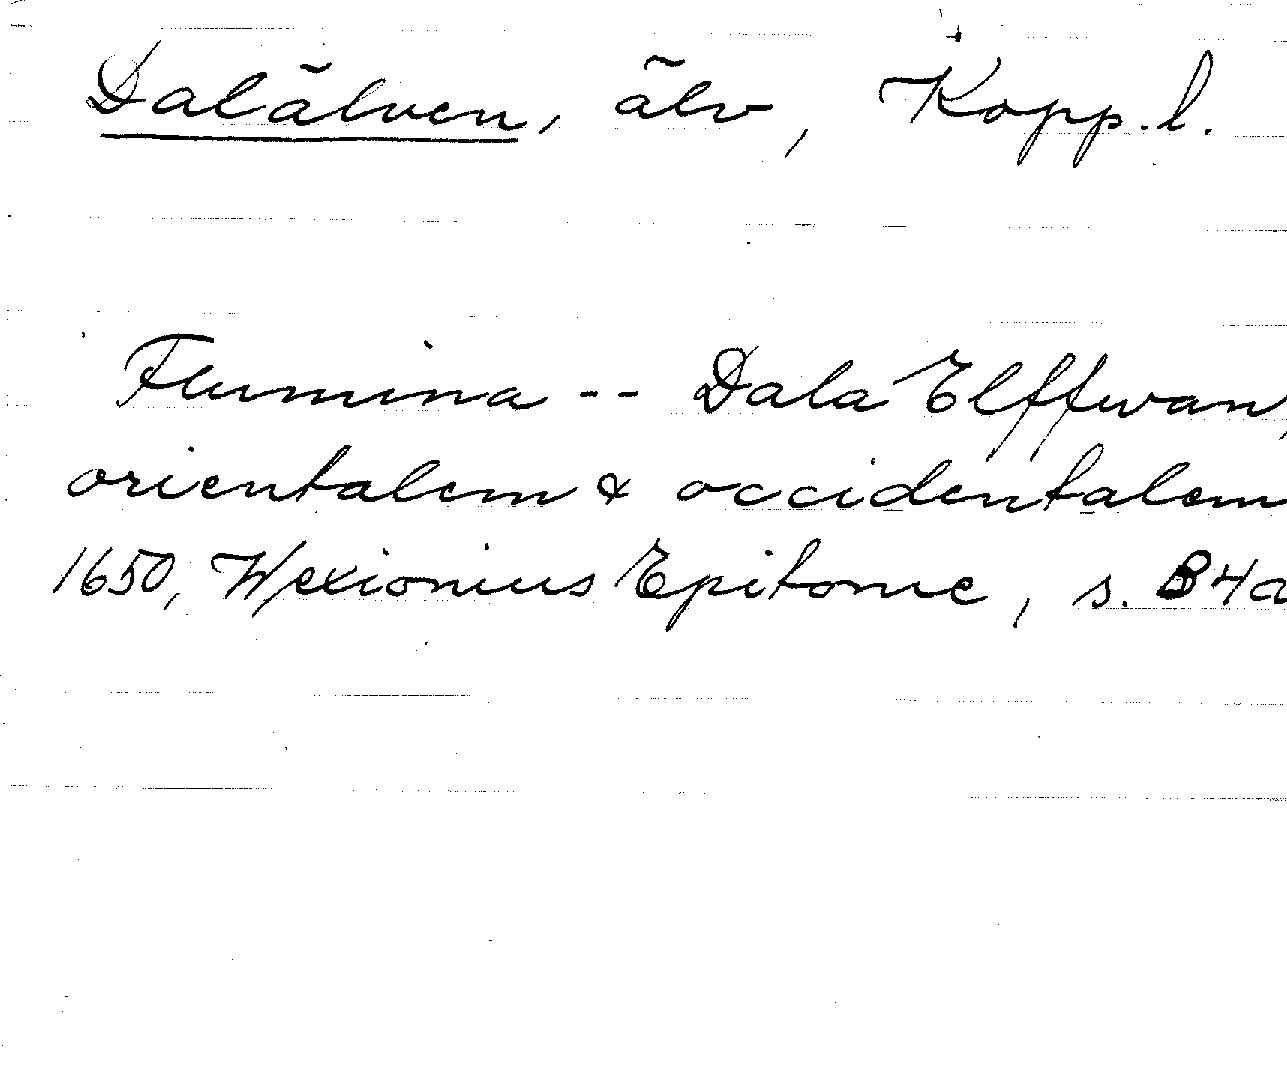 Dalälven, älv, Kopp. l.
Flumina -- Dala Elffwan,
orientalem & occidentalem
1650, Wexionius Epitome, s. B4a